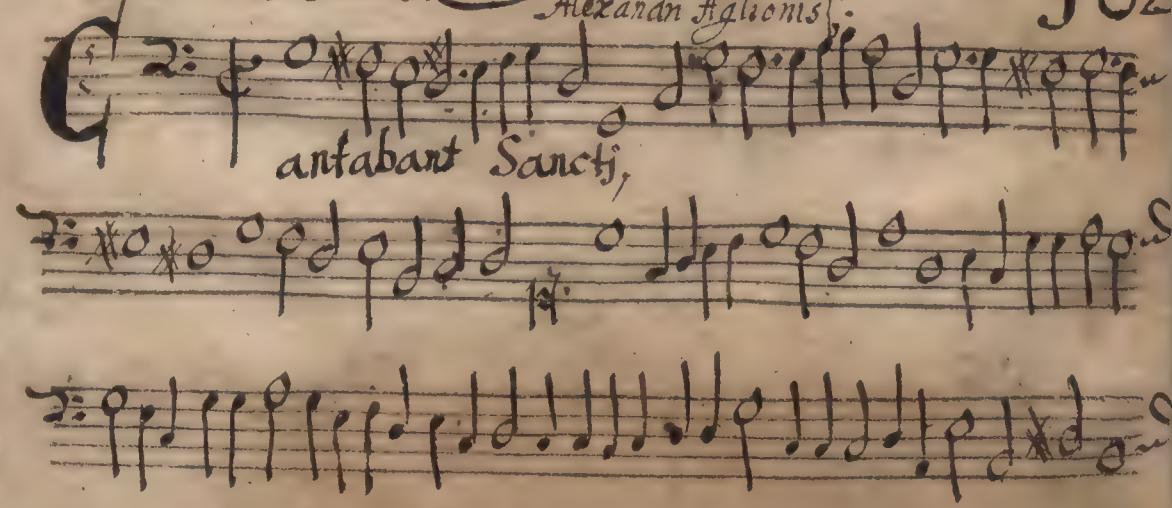 Alexandri Aglionis.
Cantabant Sanctj,